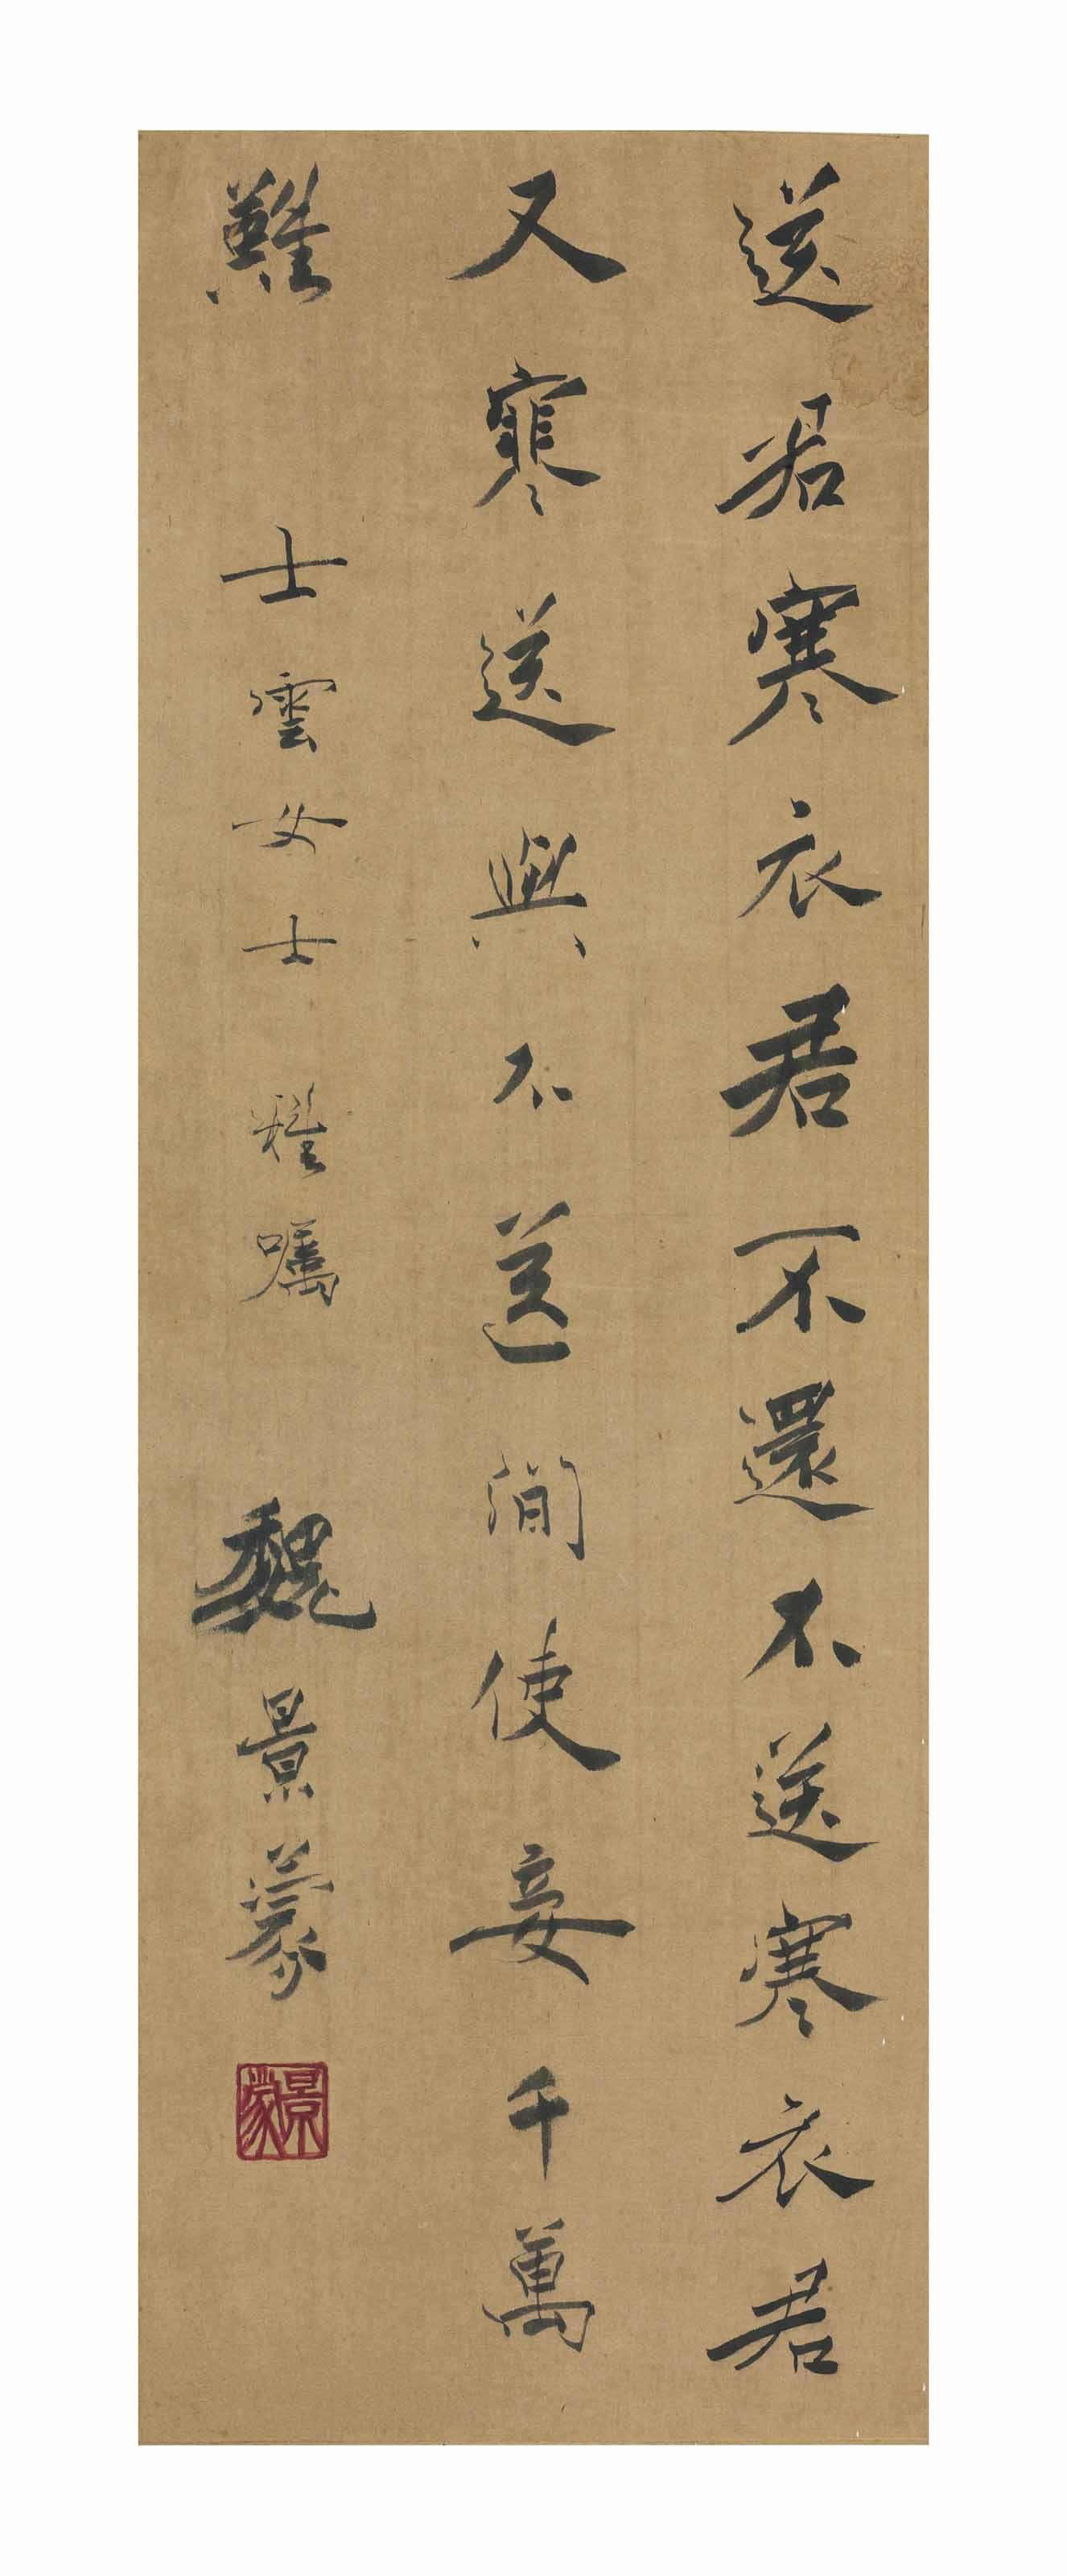 送君寒衣君不還不送寒衣君
又寒送與不送間使妾千萬
難
士雲女士 雅囑 魏景蒙
景蒙